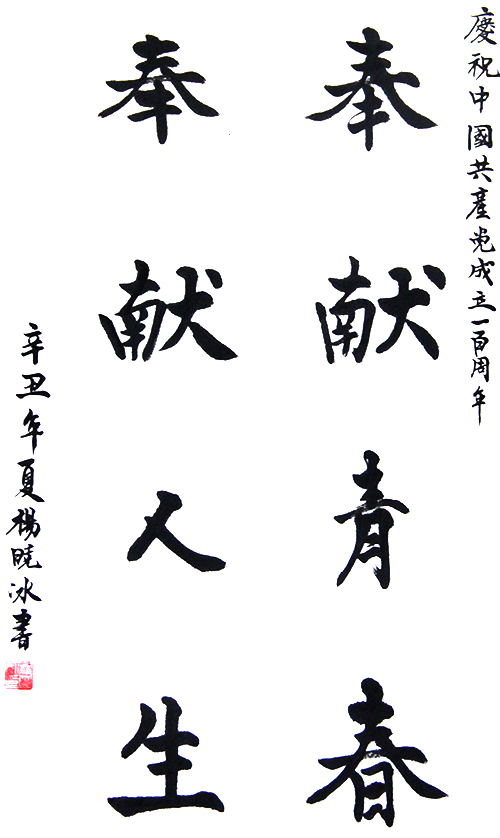 慶祝中國共產党成立一百周年
奉献青春
奉献人生
辛丑年夏楊曉冰書